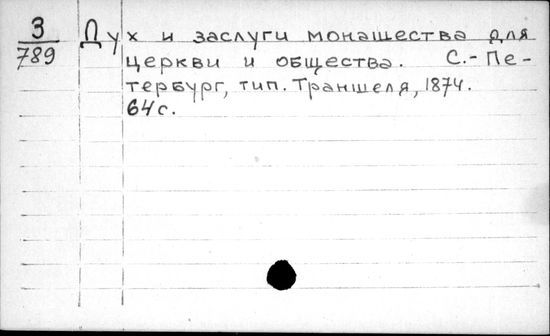 З
789
Дух и заслуги монашества для
церкви и общества. С.-Пе-
тербург, тип. Траншеля, 1874.
64 с.